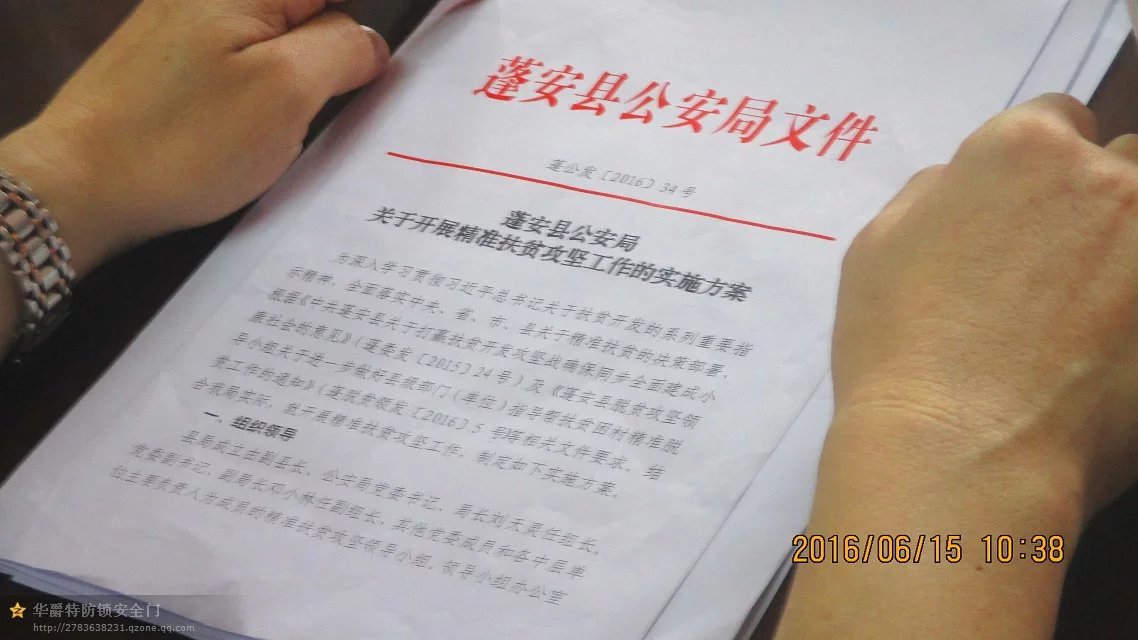 蓬安县公安局文件
蓬公发〔2016〕34号
蓬安县公安局
关于开展精准扶贫攻坚工作的实施方案
为深入学习贯彻习近平总书记关于扶贫开发的系列重要指
示精神，全面落实中央、省、市、县关于精准扶贫的决策部署，
根据《中共蓬安县关于打赢扶贫开发攻坚战确保同步全面建成小
康社会的意见》（蓬委发〔2015〕24号）及《蓬安县脱贫攻坚领
导小组关于进一步做好县级部门（单位）指导帮扶贫困村精准脱
贫工作的通知》（蓬脱贫领发〔2016〕5号）等相关文件要求。结
合我局实际，就开展精准扶贫攻坚工作，制定如下实施方案。
一、组织领导
县局成立由副县长、公安局党委书记、局长刘天灵任组长，
党委副书记、副局长邓小林任副组长，其他党委成员和各中层单
位主要负责人为成员的精准扶贫攻坚领导小组。领导小组办公室
2016/06/15 10:38
华爵特防锁安全门
http://2783638231.qzone.qq.com